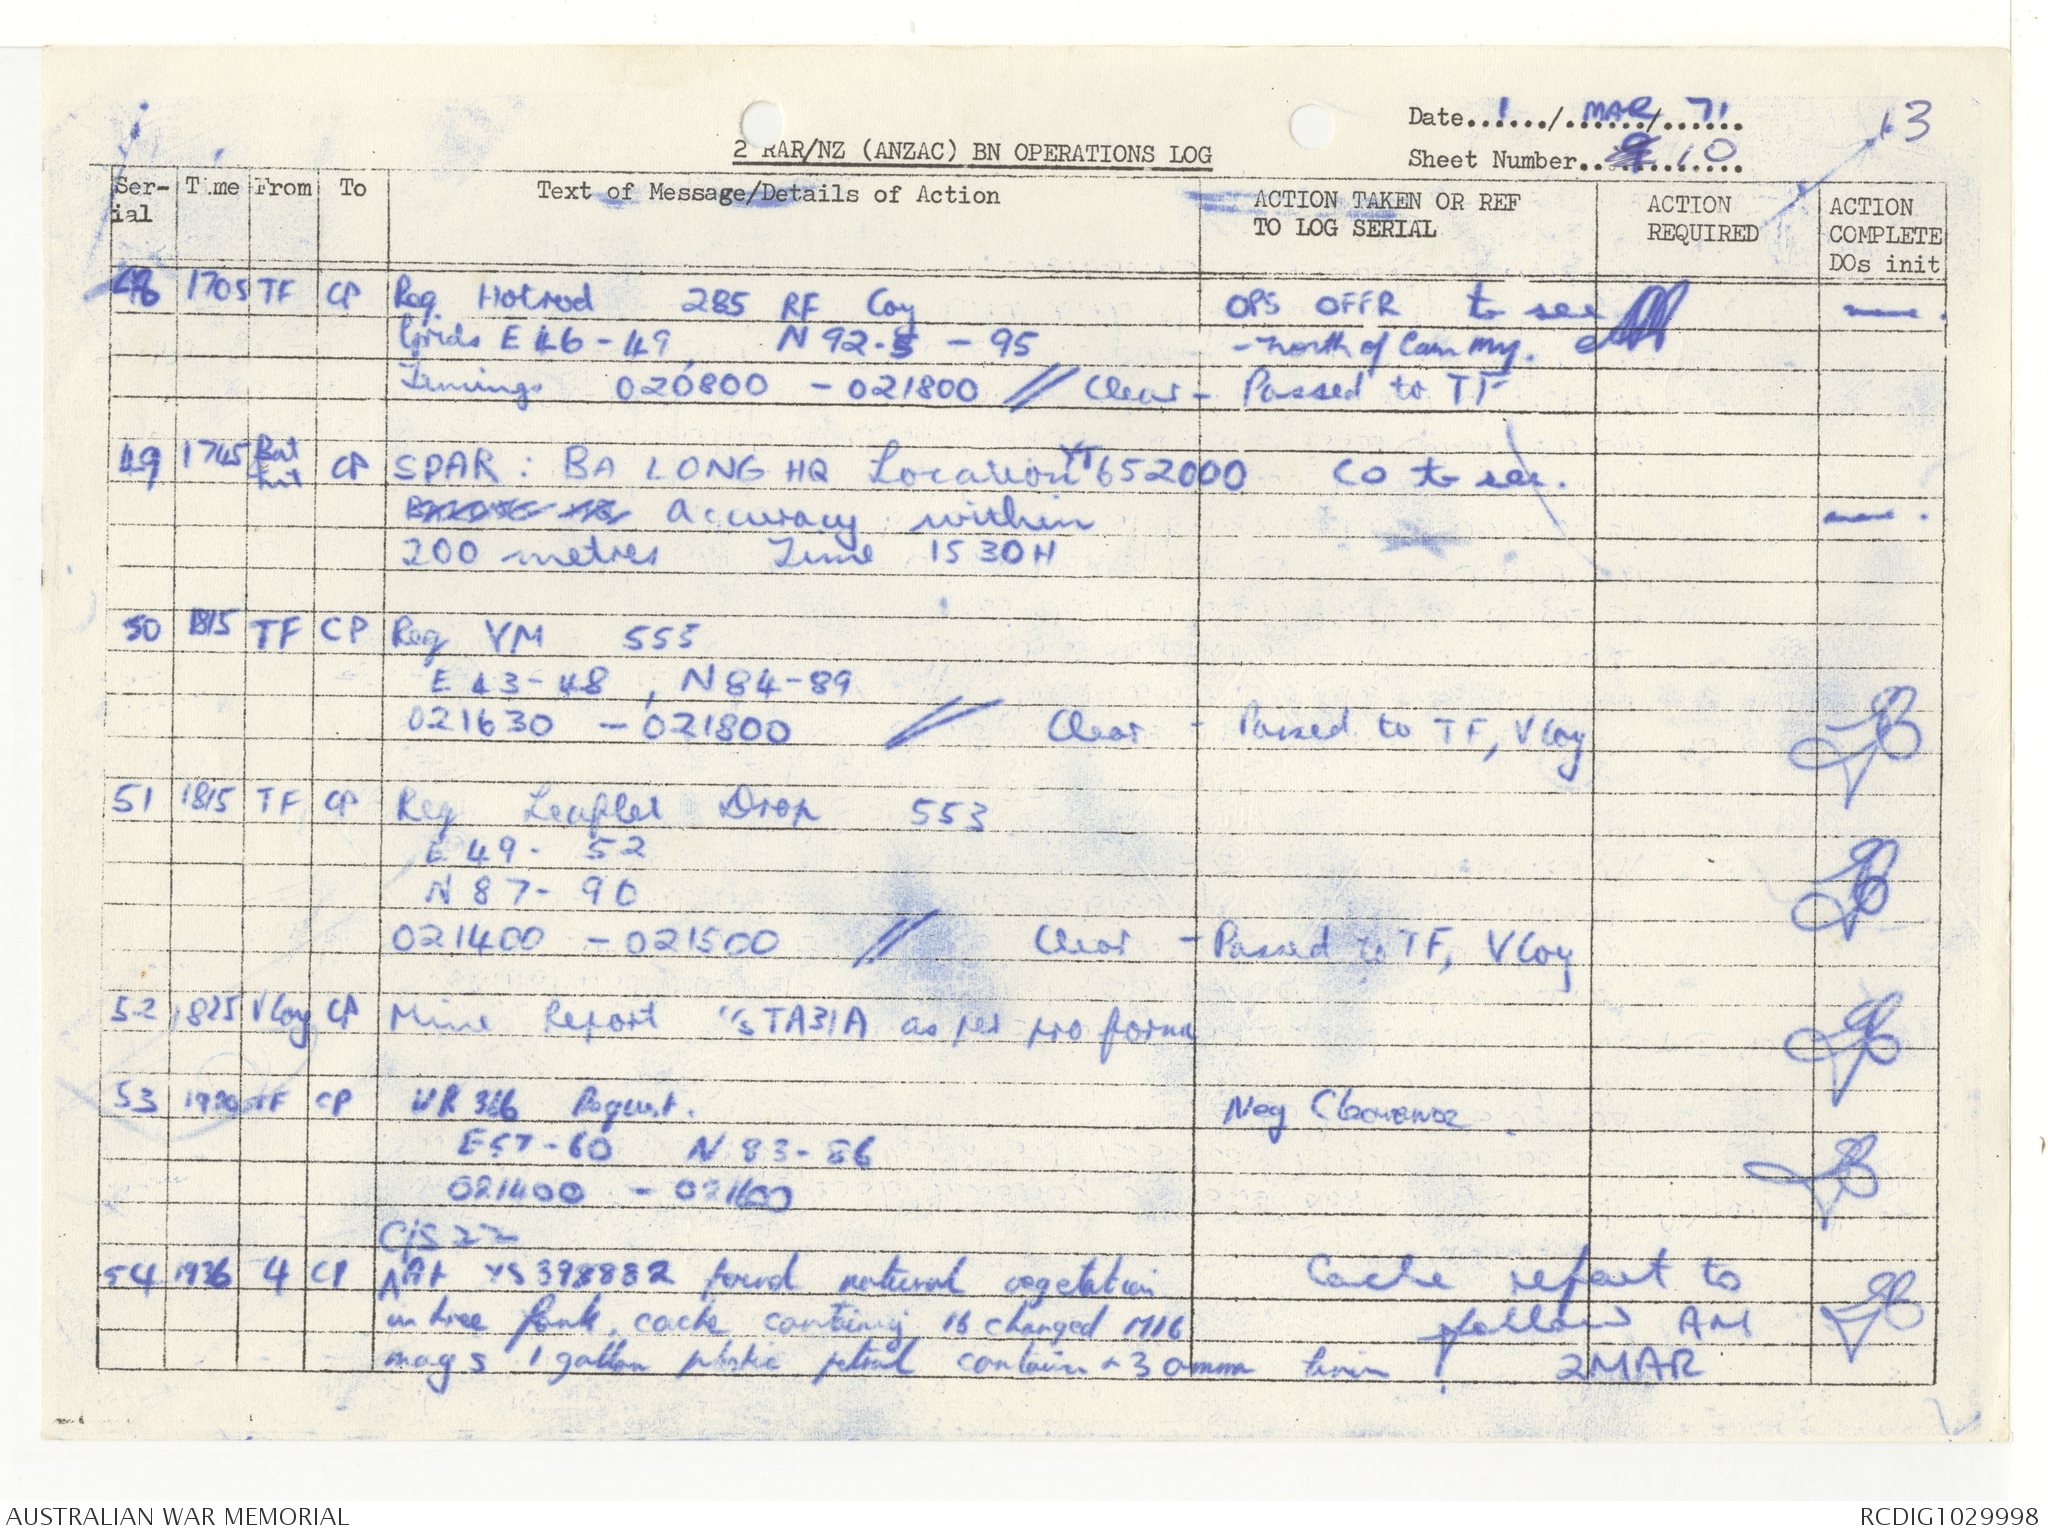 Date 1 / MAR / 71
13
2 RAR/NZ (ANZAC) BN OPERATIONS LOG
Sheet Number 10
Serial Time From To Text of Message/Details of Action ACTION TAKEN OR REF TO LOG SERIAL ACTION REQUIRED ACTION COMPLETE DOs init
48 1705 TF CP Req Hotrod 285 RF Coy OPS OFFR to see
Grids E 46-49, N 92.5 - 95 - north of Cam My.
Timings 020800 - 021800 // Clear - Passed to TF
49 1745 Bat Int CP SPAR : BA LONG HQ Location YT 652000 CO to see.
Accuracy within
200 metres Time 1530H
50 1815 TF CP Req VM 553
E 43-48, N 84-89
021630 - 021800 // Clear - Passed to TF, V Coy
51 1815 TF CP Req Leaflet Drop 553
E 49- 52
N 87- 90
021400 - 021500 // Clear - Passed to TF, V Coy
52 1825 V Coy CP Mine Report C/S TA31A as per pro forma
53 1930 TF CP VR 316 Request. Neg Clearance
E57-60 N 83-86
021400 - 021600
C/S 22
54 1936 4 CP At YS 398882 found natural vegetation Cache report to
in tree cache containing 16 charged M16 follow AM
mags 1 gallon plastic petrol container 30mm 2MAR
AUSTRALIAN WAR MEMORIAL
RCDIG1029998